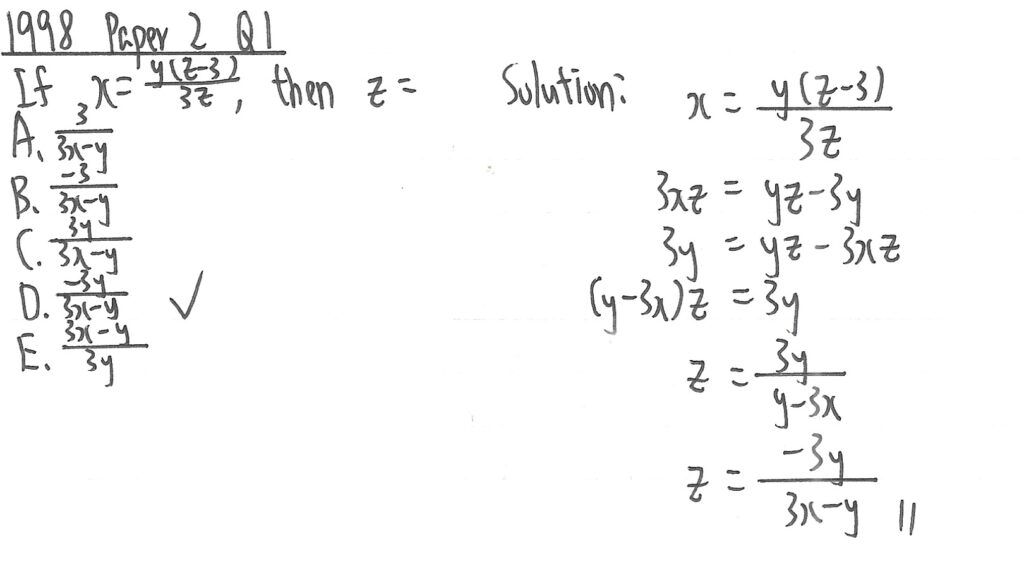 1998 Paper 2 Q1
If x = y(z-3)/3z, then z =
A. 3/3x-y
B. -3/3x-y
C. 3y/3x-y
D. -3y/3x-y ✓
E. 3x-y/3y
Solution: x = y(z-3)/3z
3xz = yz-3y
3y = yz-3xz
(y-3x)z = 3y
z = 3y/y-3x
z = -3y/3x-y //